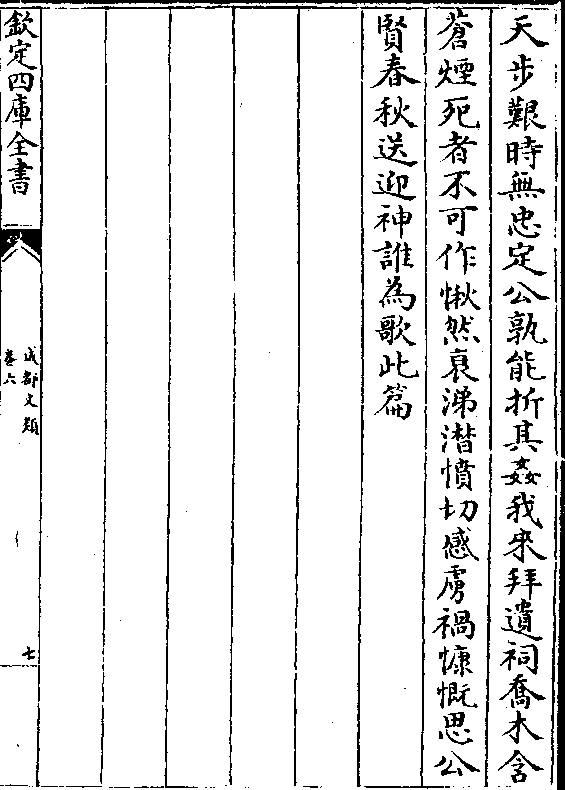 天步艱時無忠定公孰能折其姦我來拜遺祠喬木含
蒼煙死者不可作愀然哀涕潸憤切感虜禍慷慨思公
賢春秋送迎神誰為歌此篇
欽定四庫全書
成都文類
卷六
七